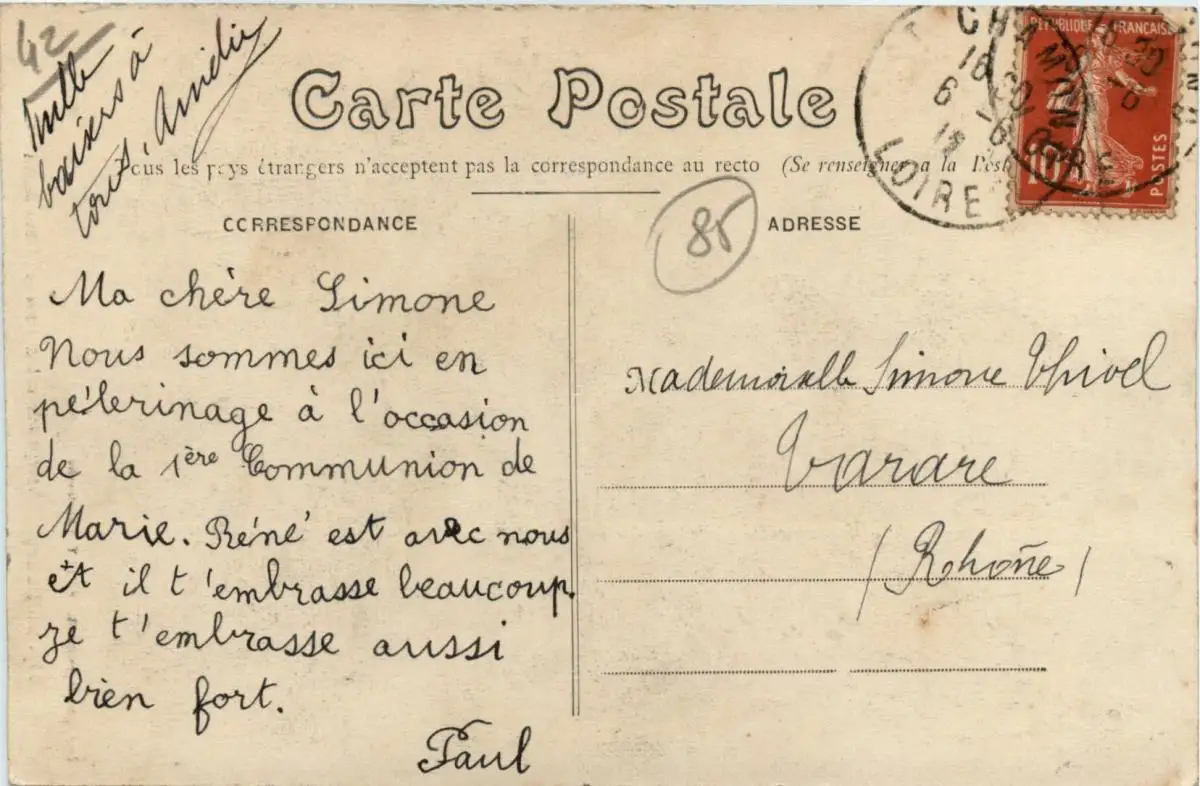 42
Mille
baisers à
tous, Amédée
Carte Postale
Tous les pays étrangers n'acceptent pas la correspondance au recto (Se renseigner à la Poste
CORRESPONDANCE
85
ADRESSE
Ma chère Simone
Nous sommes ici en
pélerinage à l'occasion
de la 1ère Communion de
Marie. Réné est avec nous
et il t'embrasse beaucoup.
je t'embrasse aussi
bien fort.
Paul
Mademoiselle Simone Thivel
Tarare
(Rhône)
REPUBLIQUE FRANÇAISE
POSTES
10
LOIRE